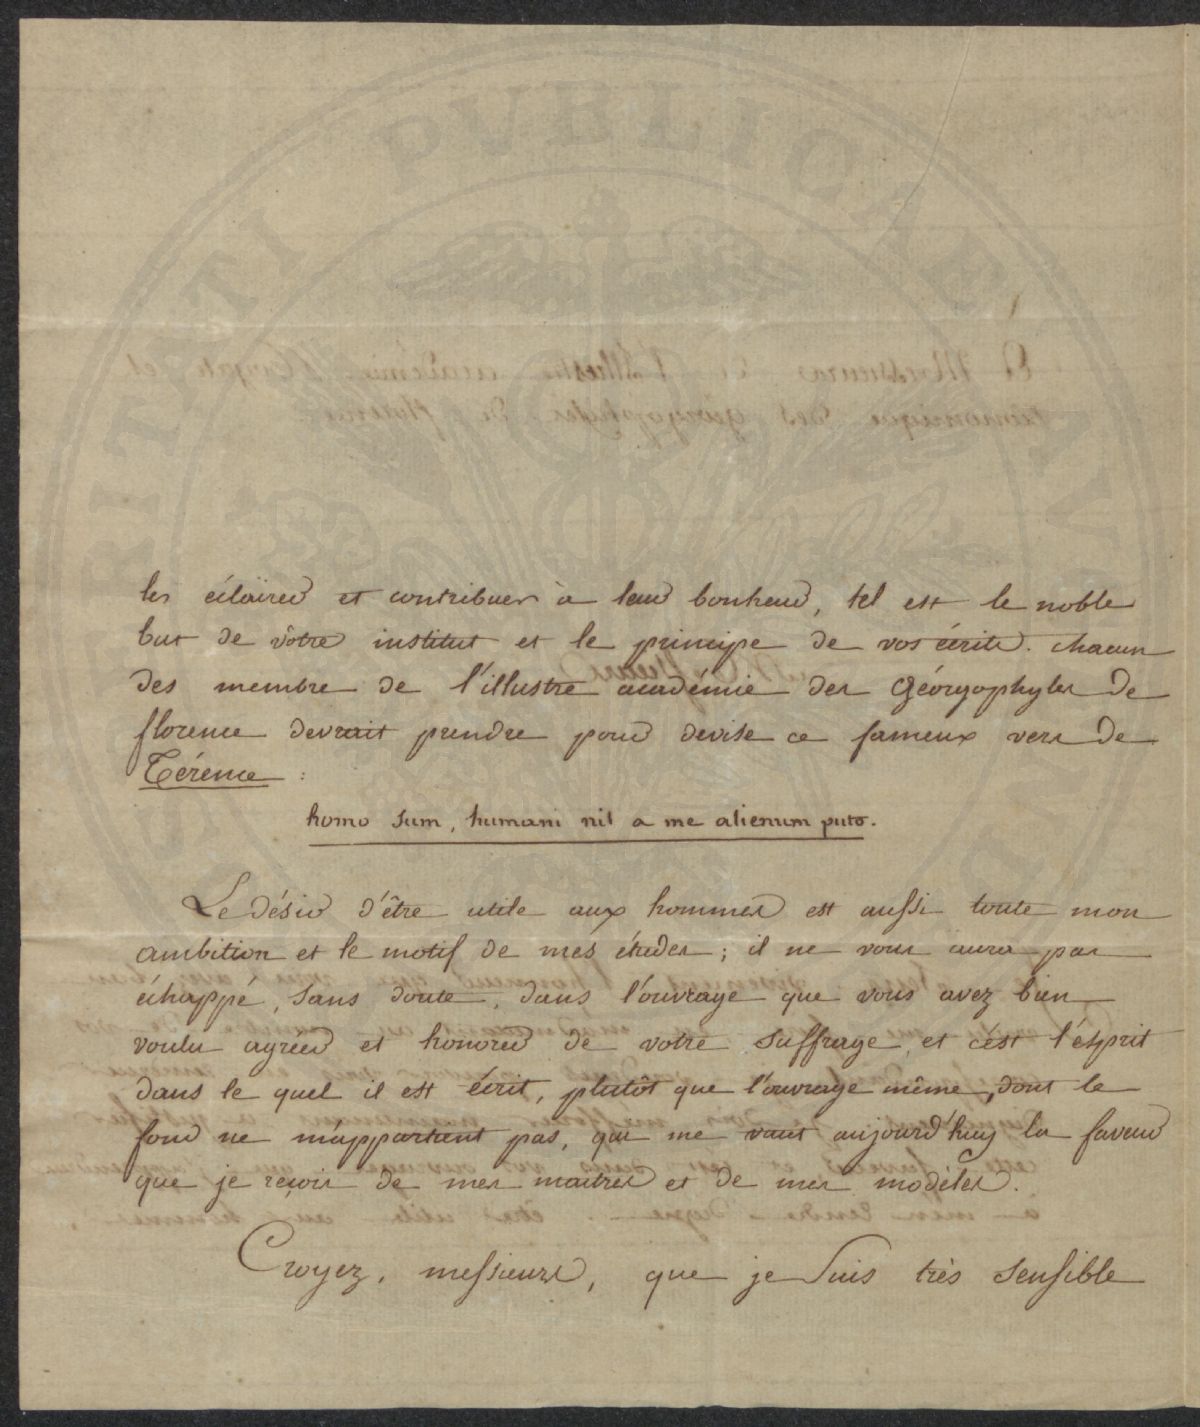 les éclairer et contribuer à leur bonheur, tel est le noble
but de vôtre institut et le principe de vos écrits. chacun
des membre de l'illustre académie des Géorgophyles de
florence devrait prendre pour devise ce fameux vers de
Térence :
homo sum, humani nil a me alienum puto.
Le désir d'être utile aux hommes est aussi toute mon
ambition et le motif de mes études ; il ne vous aura pas
échappé, sans doute, dans l'ouvrage que vous avez bien
voulu agréer et honorer de votre suffrage, et c'ést l'ésprit
dans le quel il est écrit, plutôt que l'ouvrage même, dont le
fond ne m'appartient pas, qui me vaut aujourd'huy la faveur
que je reçois de mes maitres et de mes modéles.
Croyez, messieurs, que je suis très sensible